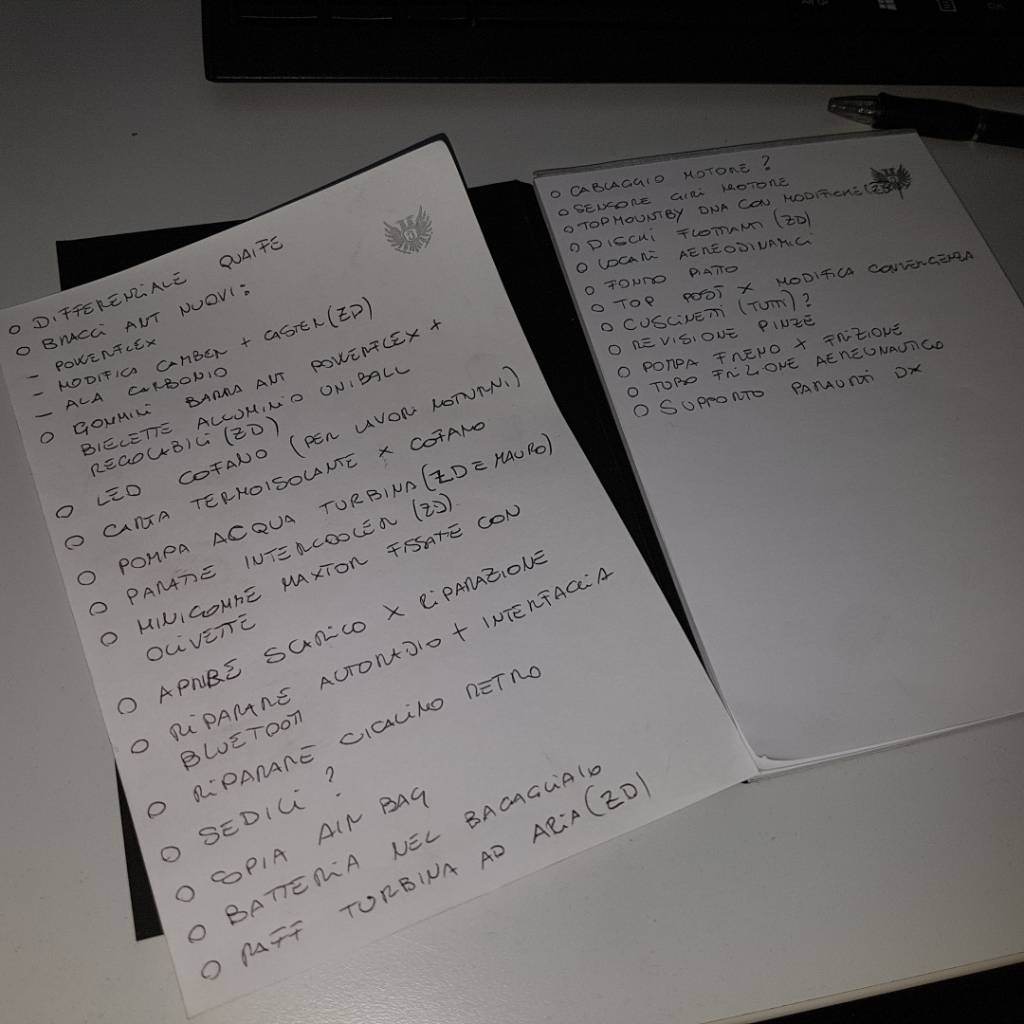 O DIFFERENZIALE QUAIFE
O BRACCI ANT NUOVI:
- POWERFLEX
- MODIFICA CAMBER + CASTER (ZD)
- ALA CARBONIO
O GOMMINI BARRA ANT POWERFLEX +
BIELETTE ALLUMINIO UNIBALL
REGOLABILI (ZD)
O LED COFANO (PER LAVORI NOTTURNI)
O CARTA TERMOISOLANTE X COFANO
O POMPA ACQUA TURBINA (ZD E MAURO)
O PARATIE INTERCOOLER (ZD)
O MINIGONNE MAXTON FISSATE CON
OLIVETTE
O APRIRE SCARICO X RIPARAZIONE
O RIPARARE AUTORADIO + INTERFACCIA
BLUETOOT
O RIPARARE CICALINO RETRO
O SEDILI ?
O SPIA AIR BAG
O BATTERIA NEL BAGAGLIAIO
O RAFF TURBINA AD ARIA (ZD)
O CABLAGGIO MOTORE ?
O SENSORE GIRI MOTORE
O TOP MOUNT BY DNA CON MODIFICHE (ZD)
O DISCHI FLOTTANTI (ZD)
O LOCARI AEREODINAMICI
O FONDO PIATTO
O TOP POST X MODIFICA CONVERGENZA
O CUSCINETTI (TUTTI) ?
O REVISIONE PINZE
O POMPA FRENO X FRIZIONE
O TUBO FRIZIONE AEREONAUTICO
O SUPPORTO PARAURTI DX